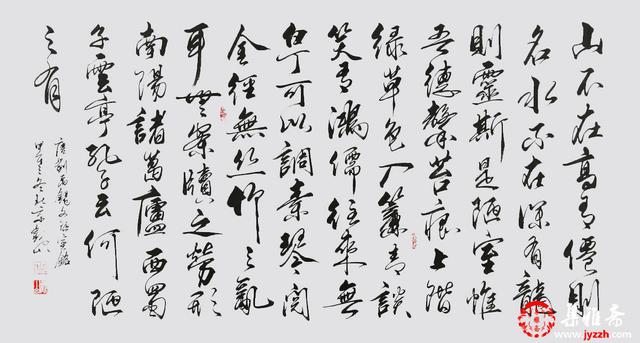 山不在高有僊則
名水不在深有龍
則靈斯是陋室惟
吾德馨苔痕上階
緑草色入簾青談
笑有鴻儒往來無
白丁可以調素琴閱
金經無丝竹之亂
耳無案牘之勞形
南陽諸葛廬西蜀
子雲亭孔子云何陋
之有
唐劉禹錫文陋室銘
集雅斋
www.jyzzh.com